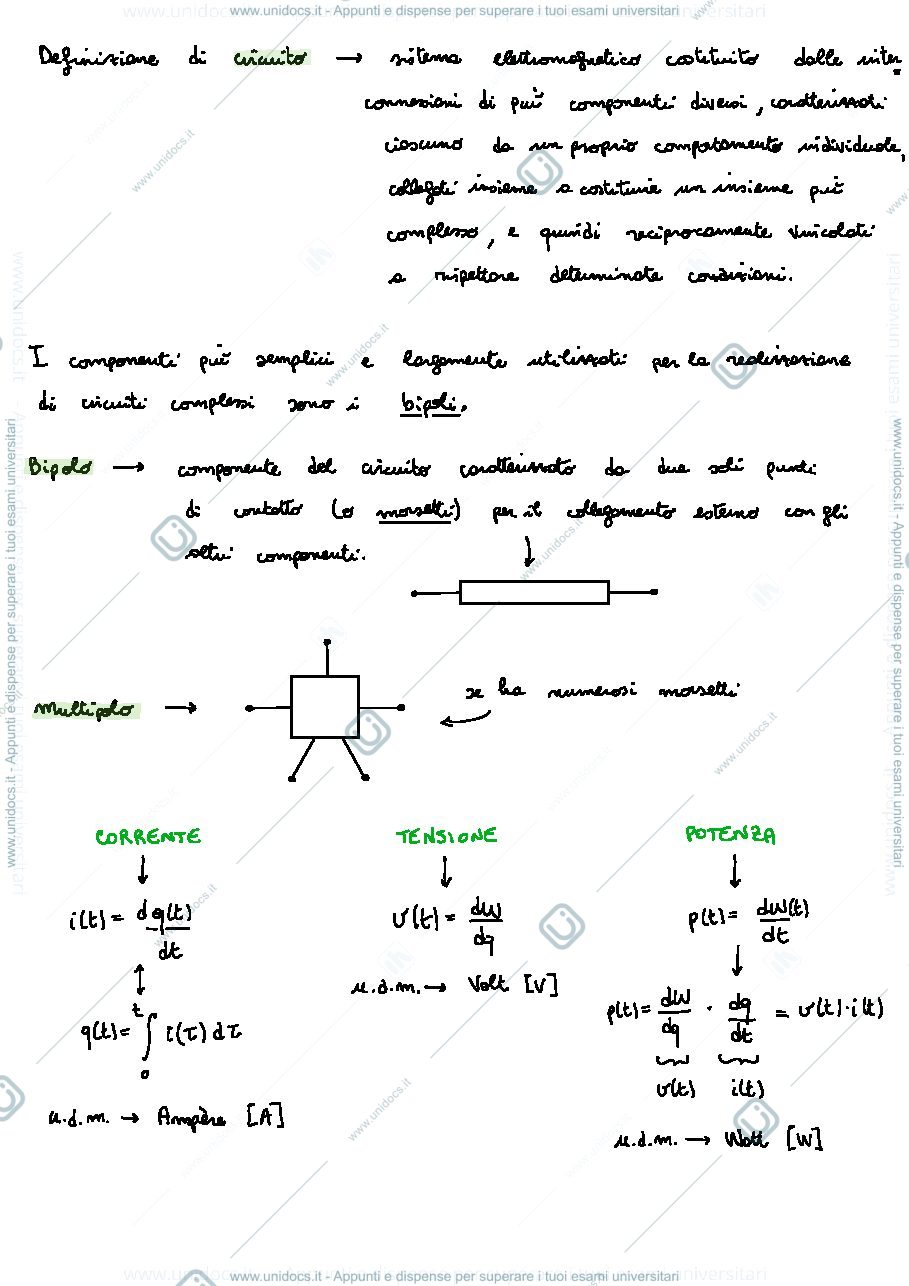 www.unidocs.it - Appunti e dispense per superare i tuoi esami universitari
Definizione di circuito → sistema elettromagnetico costituito dalle inter
connessioni di più componenti diversi, caratterizzati
ciascuno da un proprio comportamento individuale,
collegati insieme a costituire un insieme più
complesso, e quindi reciprocamente vincolati
a rispettare determinate condizioni.
I componenti più semplici e largamente utilizzati per la realizzazione
di circuiti complessi sono i bipoli.
Bipolo → componente del circuito caratterizzato da due soli punti
di contatto (o morsetti) per il collegamento esterno con gli
altri componenti.
Multipolo → se ha numerosi morsetti
CORRENTE TENSIONE POTENZA
i(t) = dq(t)/dt v(t) = dW/dq p(t) = dW(t)/dt
u.d.m. → Volt [V]
q(t) = ∫₀ᵗ i(τ) dτ p(t) = dW/dq · dq/dt = v(t)·i(t)
v(t) i(t)
u.d.m. → Ampère [A]
u.d.m. → Watt [W]
www.unidocs.it - Appunti e dispense per superare i tuoi esami universitari